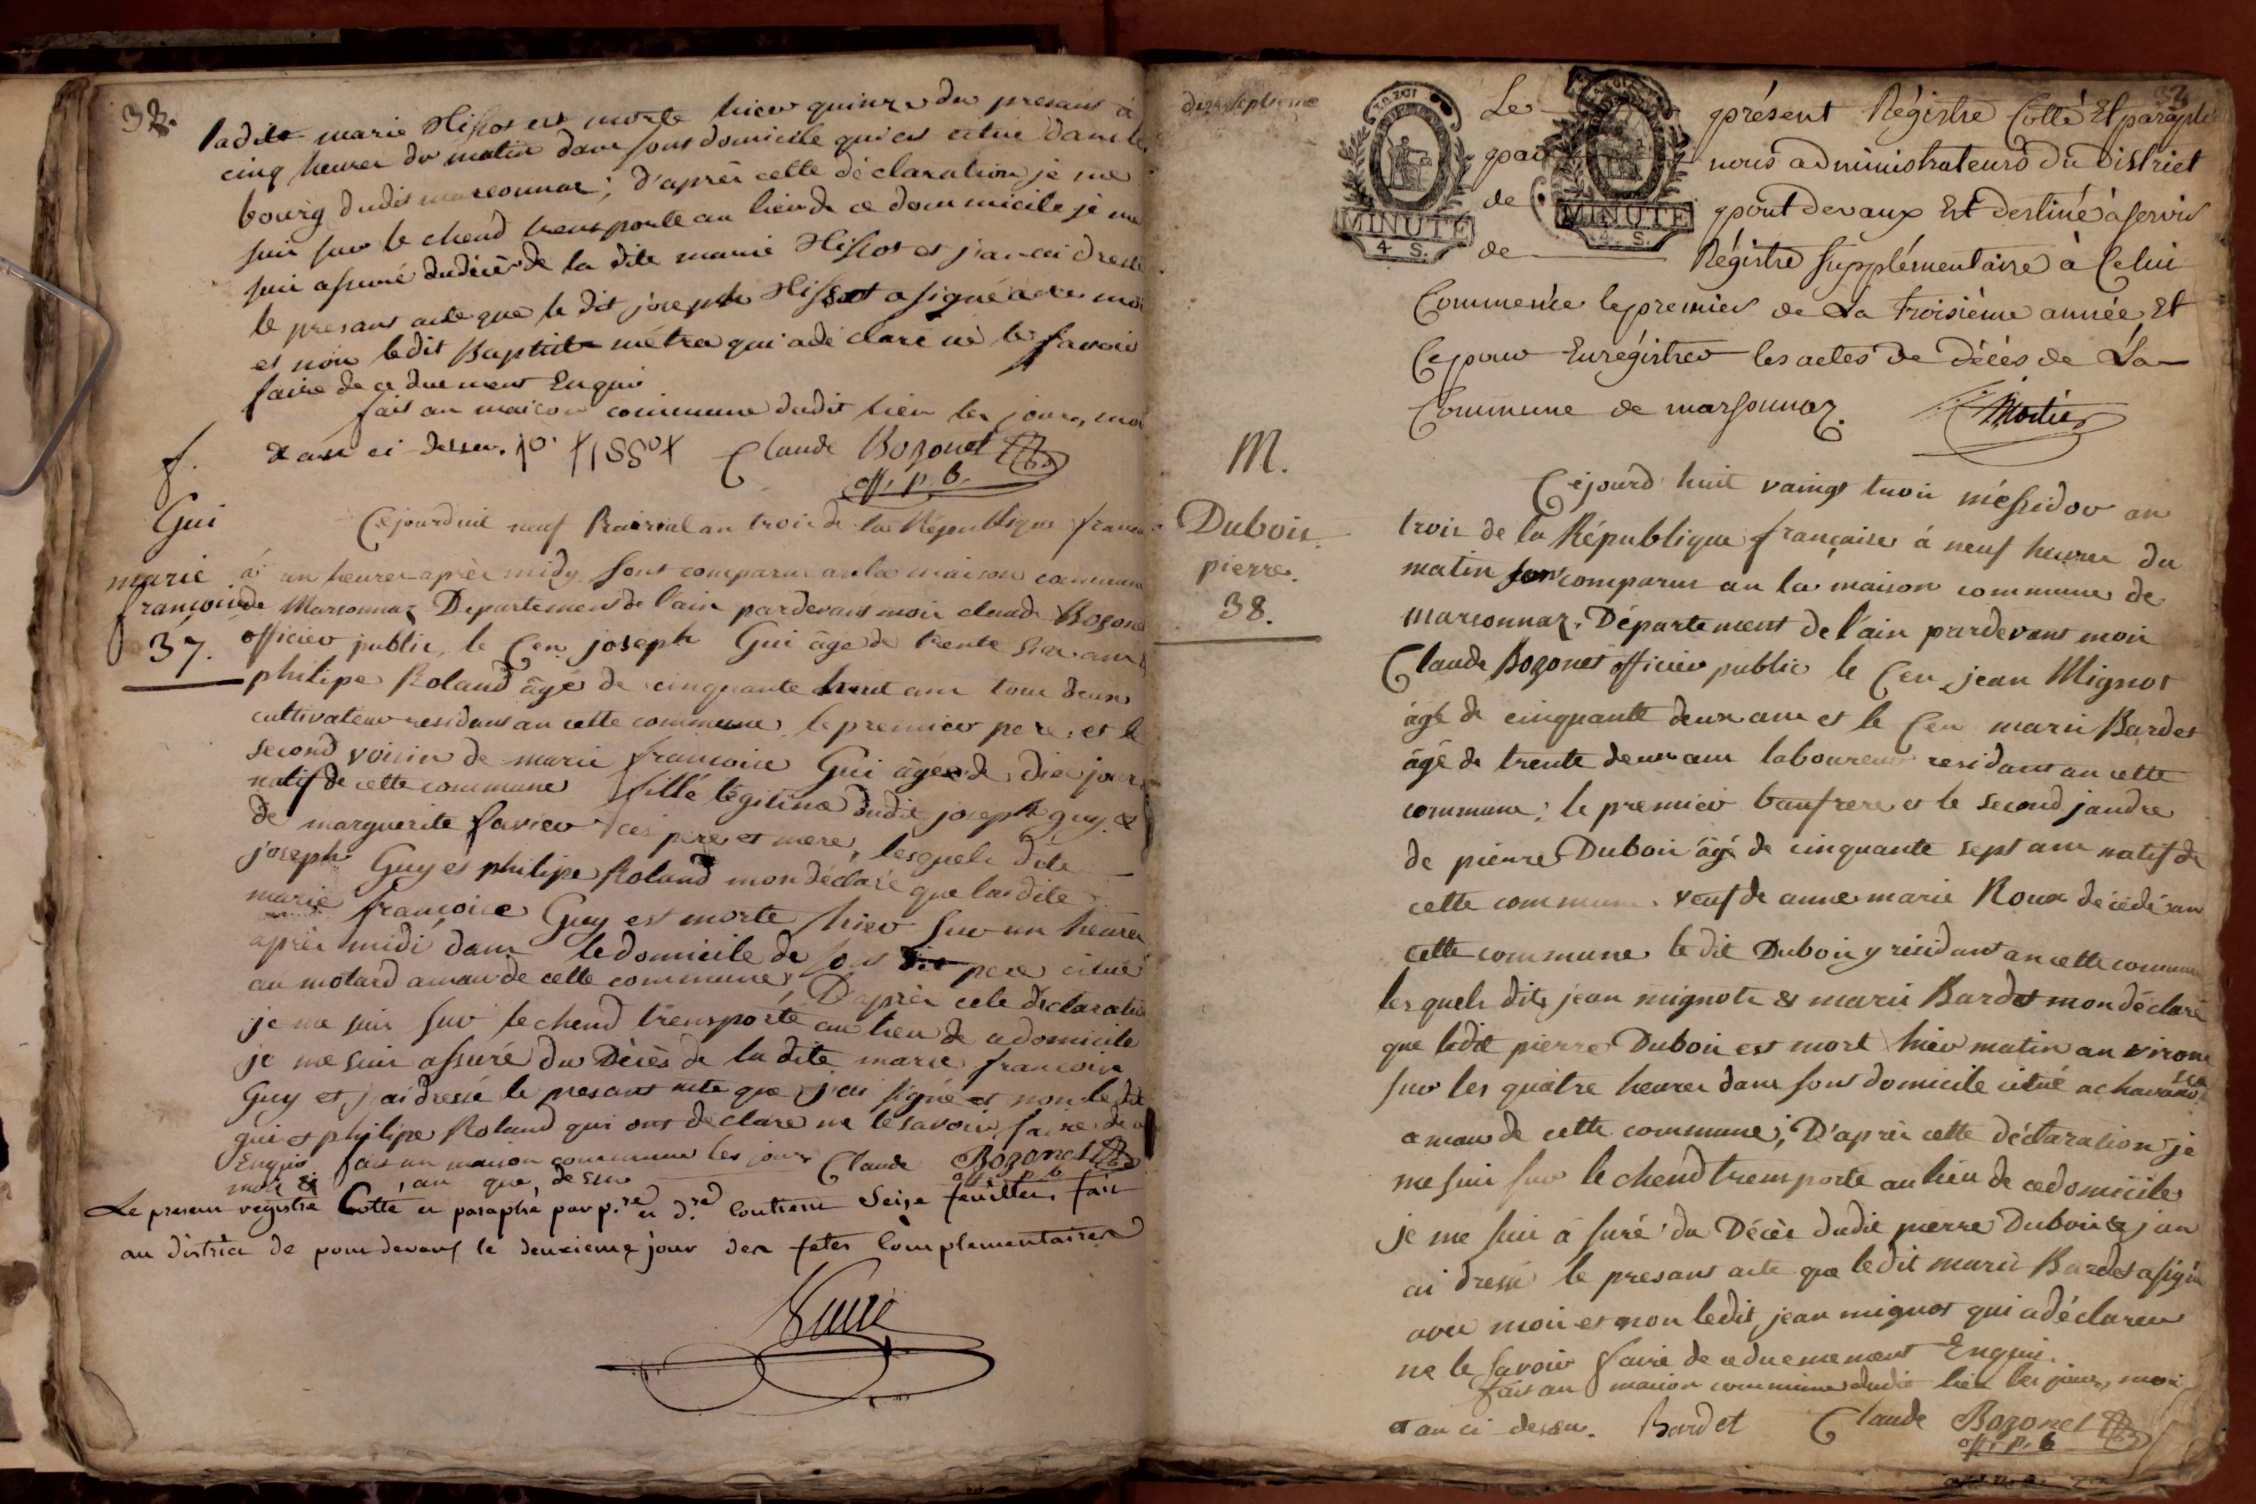 32.
ladite marie Hissot est morte hier quinze du presant à
cinq heures du matin dans sont domicile qui est citué dans le
bourg dudit marsonnaz; d'après cette déclaration je me
suis sur le chend transporté au lieu de ce dommicile je me
suis assuré du décès de la dite marie Hissot et j'an ai dressé
le presant acte que le dit joseph Hissot a signé avec moi
et non ledit Baptiste métra qui a déclaré ne le savoir
faire de ce duement Enquis
fait an maison commune dudit lieu les jour, moi
et an ci dessu. Claude Bozonet
offi. p. b.
f.
Gui
marie
francoise
37.
Cejourd'uit neuf Prairial an trois de la République française
à un heures après midy sont comparus an la maison commune
de Marsonnaz Departement de l'ain pardevant moi claude Bozonet
officier public, le Cen joseph Gui âgé de trente six ans
philipe Roland âgé de cinquante huit ans tous deux
cultivateur residant an cette commune, le premier pere, et le
second voisin de marie francoise Gui âgée de dix jours
natif de cette commune fille légitime dudit joseph guy &
de marguerite favier ces pere et mere, lesquels dits
joseph Guy et philipe Roland mon déclaré que ladite
marie francoise Guy est morte hier sur un heures
après midi dans le domicile de son dit pere citué
au motard amau de cette commune, D'après cete declaration
je me suis sur le chend transporté au lieu de ce domicile
je me suis assuré du Décès de la dite marie francoise
Guy et j'ai dressé le presant acte que j'ai signé et non le dit
gui et philipe Roland qui ont declaré ne le savoir faire de ce
Enquis fait an maison commune les jour Claude Bozonet
moi & an que de su offi. p. b
Le present registre Cotté et paraphé par p.re et d.re contient Seize feuillets fait
au district de pont devaux le deuxieme jour des fetes Complementaires
dix septieme
33
Le présent Régistre Cotté Et paraphé
par nous administrateurs du District
de pont devaux Est destiné à servir
de Régistre supplémentaire à Celui
Commencé le premier de La Troisième année Et
Ce pour Enrégistrer les actes de décès de La
Commune de marsonnaz. Mortier
M.
Dubois
pierre.
38.
Cejourd'huit vaingt trois méssidor an
trois de la République française à neuf heures du
matin sont comparus an la maison commune de
marsonnaz. Département de l'ain pardevant moi
Claude Bozonet officier public le Cen jean Mignot
âgé de cinquante deux ans et le Cen marie Bardet
âgé de trente deux ans laboureur residant an cette
commune; le premier baufrere et le second jandre
de pierre Dubois âgé de cinquante sept ans natif de
cette commune. veuf de anne marie Roux décédé an
cette commune le dit Dubois y residant an cette commune
les quels dits jean mignot & marie Bardet mon déclaré
que ledit pierre Dubois est mort hier matin an virons
sur les quatre heures dans sont domicile citué a
amau de cette commune; D'après cette déctaration je
me suis sur le chend transporté au lieu de ce domicile
je me suis a suré du Décès dudit pierre Dubois & j'an
ai dressé le presant acte que ledit marie Bardet a signé
avec moi et non ledit jean mignot qui a déclaré
ne le savoir faire de ce duemement Enquis.
fait an maison commune dudit lieu les jour, moi
et an ci dessu. Bardet Claude Bozonet
offi. p. b
MINUTE
4 S.
MINUTE
4 S.